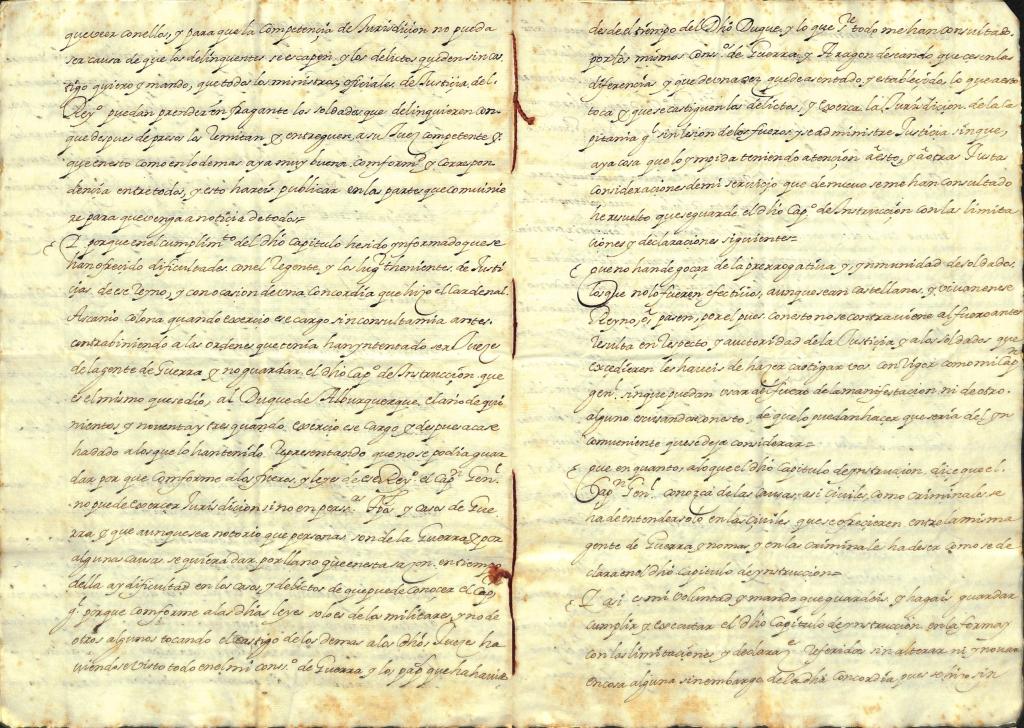 que veer con ellos, y para que la Competencia de Jurisdicion no pueda
ser causa de que los delinquentes se escapen, y los delictos queden sin cas
tigo quiero y mando, que todos los ministros, oficiales de Justicia del
Reyno puedan prender in fragante los soldados que delinquieren con
que despues de presos los remitan y entreguen a su Juez competente, y
que en esto como en lo demas aya muy buena comformd y Correspon
dencia entre todos, y esto hareis publicar en las partes que comvinie
re para que venga a noticia de todos=
Y porque en el cumplimto del dho Capitulo he sido ynformado que se
han ofrecido dificultades con el Regente, y los lugrthenientes de Justi
cias de ese Reyno, y con ocasion de una Concordia que hizo el Cardenal
Ascanio Colona quando exercio ese cargo sin consulta mia antes
contrabiniendo a las ordenes que tenia han yntentado ser Juezes
de la gente de Guerra y no guardar el dho Capo de Instrucçion que
es el mismo que se dió, al Duque de Alburquerque, el año de qui
nientos y noventa y tres quando exercio ese Cargo y despues aca se
ha dado a los que lo han tenido Representando que no se podia guar
dar por que Comforme a los fueros, y leyes de ese Reyo el Capn Genl
no puede exercer Jurisdicion sino en persas y Casos de Gue
rra, y que aunque sea notorio que personas son de la Guerra y por
alguna causa se quiera dar por llano que en esta sazon en tiempo
della ay dificultad en los casos, y delictos de que puede Conocer el Capn
gl porque comforme a las dhas leyes solo es de los militares, y no de
otros algunos tocando el castigo de los demas a los dhos Juezes ha
viendose visto todo en el mi conso de Guerra y los papes que ha havido
desde el tiempo del Dho Duque, y lo que sre todo me han consultado
por los mismos Consos de Guerra, y Aragon deseando que cesen las
diferencias y que de una vez quede asentado, y establecido, lo que a esto
toca y que se castiguen los delictos, y exerça la Jurisdiçion de la Ca
pitania gl sin lesion de los fueros y se administre Justicia sin que
aya cosa que lo ympida teniendo atençion a esto, y a otras Justas
consideraciones de mi servicio que de nuevo se me han consultado
he resuelto que se guarde el dho Capo de Instrucçion con las limita
ciones y declaraciones siguientes=
que no han de goçar de la prerrogativa y ynmunidad de soldados
los que no lo fueren efectivos, aunque sean castellanos, y vivan en ese
Reyno, o pasen por el pues con esto no se contraviene al fuero antes
resulta en respecto y autoridad de la Justicia, y a los soldados que
excedieren les haveis de hazer castigar vos con rigor como mi Capn
genl sin que puedan usar del fuero de la manifestacion ni de otro
alguno escusandose en esto, de que lo puedan hacer que seria del yn
comveniente que se deja considerar=
que en quanto, a lo que el dho Capitulo de ynstrucion, dice que el
Capn Genl conozca de las causas, asi Civiles, como Criminales se
ha de entender solo en las Civiles que se ofrecieren entre la misma
gente de Guerra, y no mas y en las criminales ha de ser como se de
clara en el dho Capitulo de ynstruccion=
Y asi es mi Voluntad y mando que guardeis, y hagais guardar
cumplir y executar el dho Capitulo de ynstrucción en la forma y
con las limitaciones, y declaraes Referidas sin alterar ni ynovar
en cosa alguna sin embargo de la dha Concordia pues se hizo sin